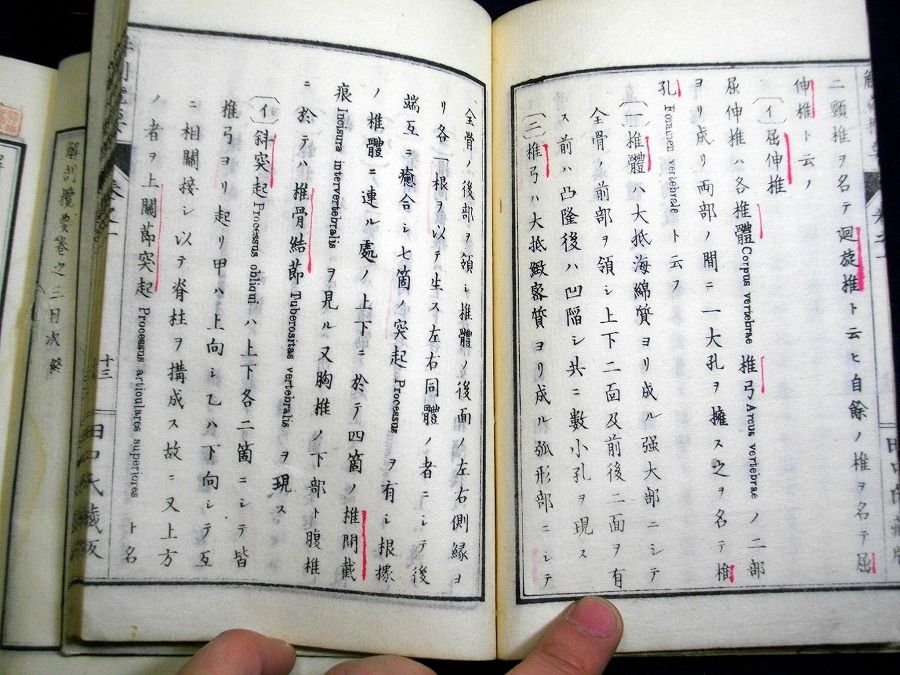 二頸椎ヲ名テ迴旋椎ト云ヒ自餘ノ椎ヲ名テ屈
伸椎ト云ノ
(イ)屈伸椎
屈伸椎ハ各椎體Corpus vertebrae椎弓Arcus vertebraeノ二部
ヨリ成リ両部ノ間ニ一大孔ヲ擁ス之ヲ名テ椎
孔Foramen vertebraleト云フ
(一)椎體ハ大抵海綿質ヨリ成ル强大部ニシテ
全骨ノ前部ヲ領シ上下二面及前後二面ヲ有
ス前ハ凸隆後ハ凹陥シ共ニ數小孔ヲ現ス
(二)椎弓ハ大抵緻密質ヨリ成ル弧形部ニシテ
全骨ノ後部ヲ領シ椎體ノ後面ノ左右側緣ヨ
リ各一根ヲ以テ生ス左右同體ノ者ニシテ後
端互ニ癒合シ七箇ノ突起Processusヲ有シ根據
ノ椎體ニ連ル處ノ上下ニ於テ四箇ノ椎間截
痕Incisura intervertebralisヲ見ル又胸椎ノ下部ト腹椎
ニ於テハ椎骨結莭Tuberositas vertebralisヲ現ス
(イ)斜突起Processus obliquiハ上下各二箇ニシテ皆
椎弓ヨリ起リ甲ハ上向シ乙ハ下向シテ互
ニ相關接シ以テ脊柱ヲ搆成ス故ニ又上方
ノ者ヲ上關莭突起Processus articulares superioresト名
十三
田口氏藏版
解剖攬要卷之三目次終